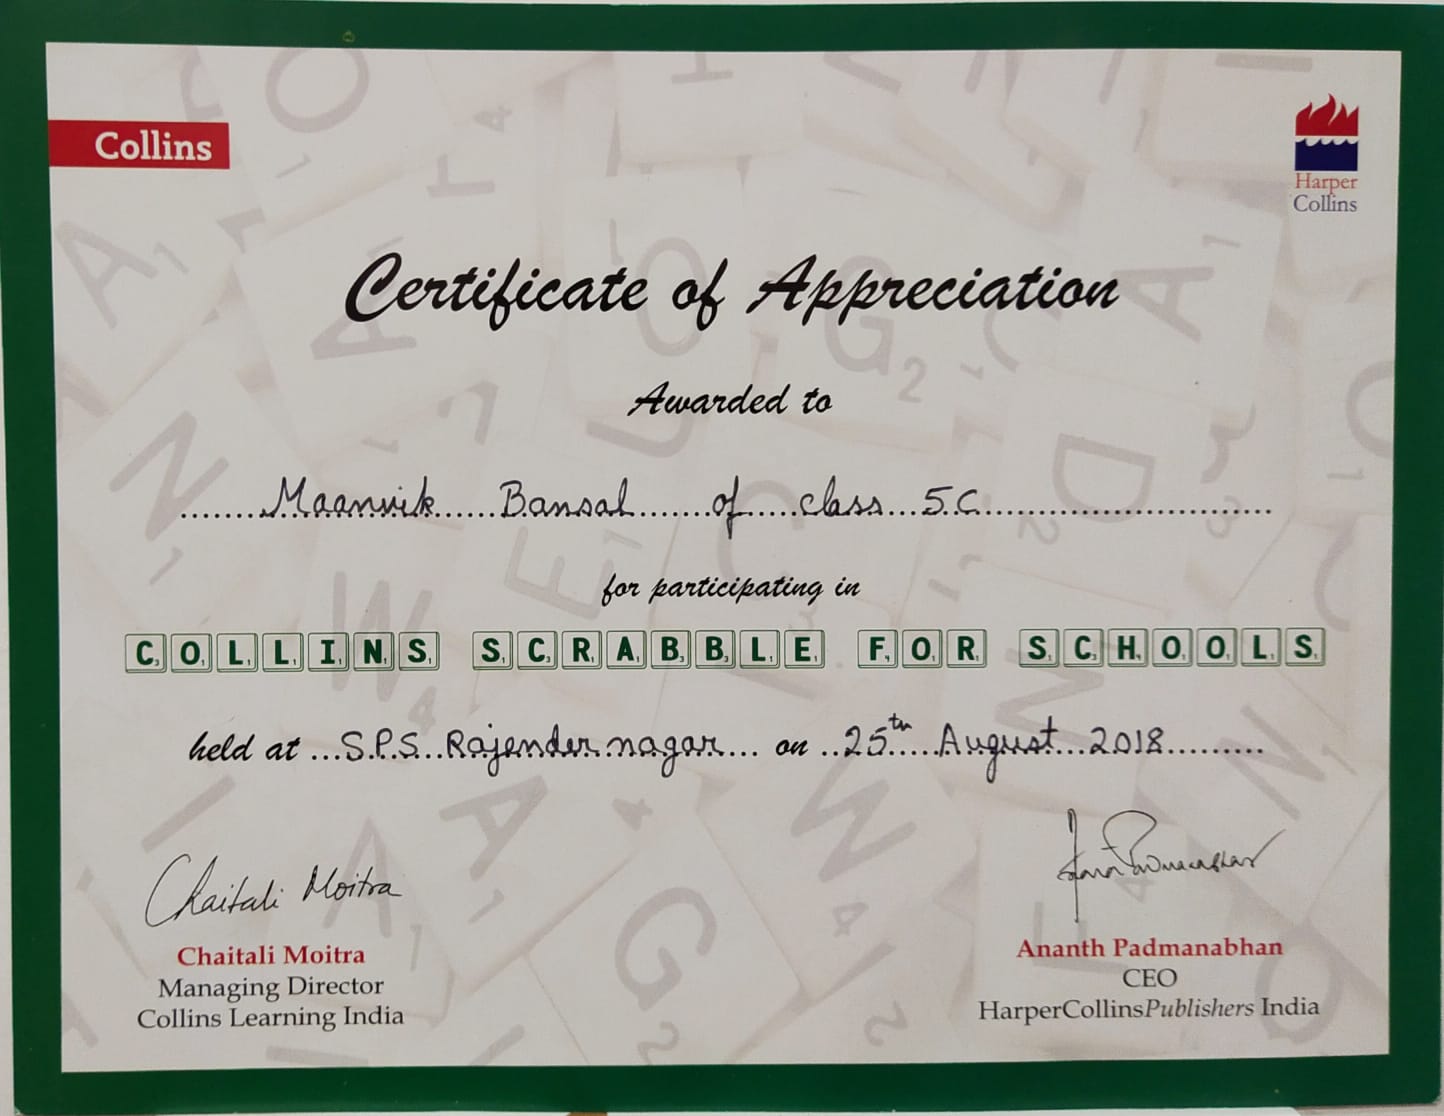 Collins
Harper
Collins
Certificate of Appreciation
Awarded to
Maanvik Bansal of class 5.C
for participating in
COLLINS SCRABBLE FOR SCHOOLS
held at S.P.S. Rajender nagar on 25th August 2018
Chaitali Moitra
Chaitali Moitra
Managing Director
Collins Learning India
Ananth Padmanabhan
CEO
HarperCollinsPublishers India